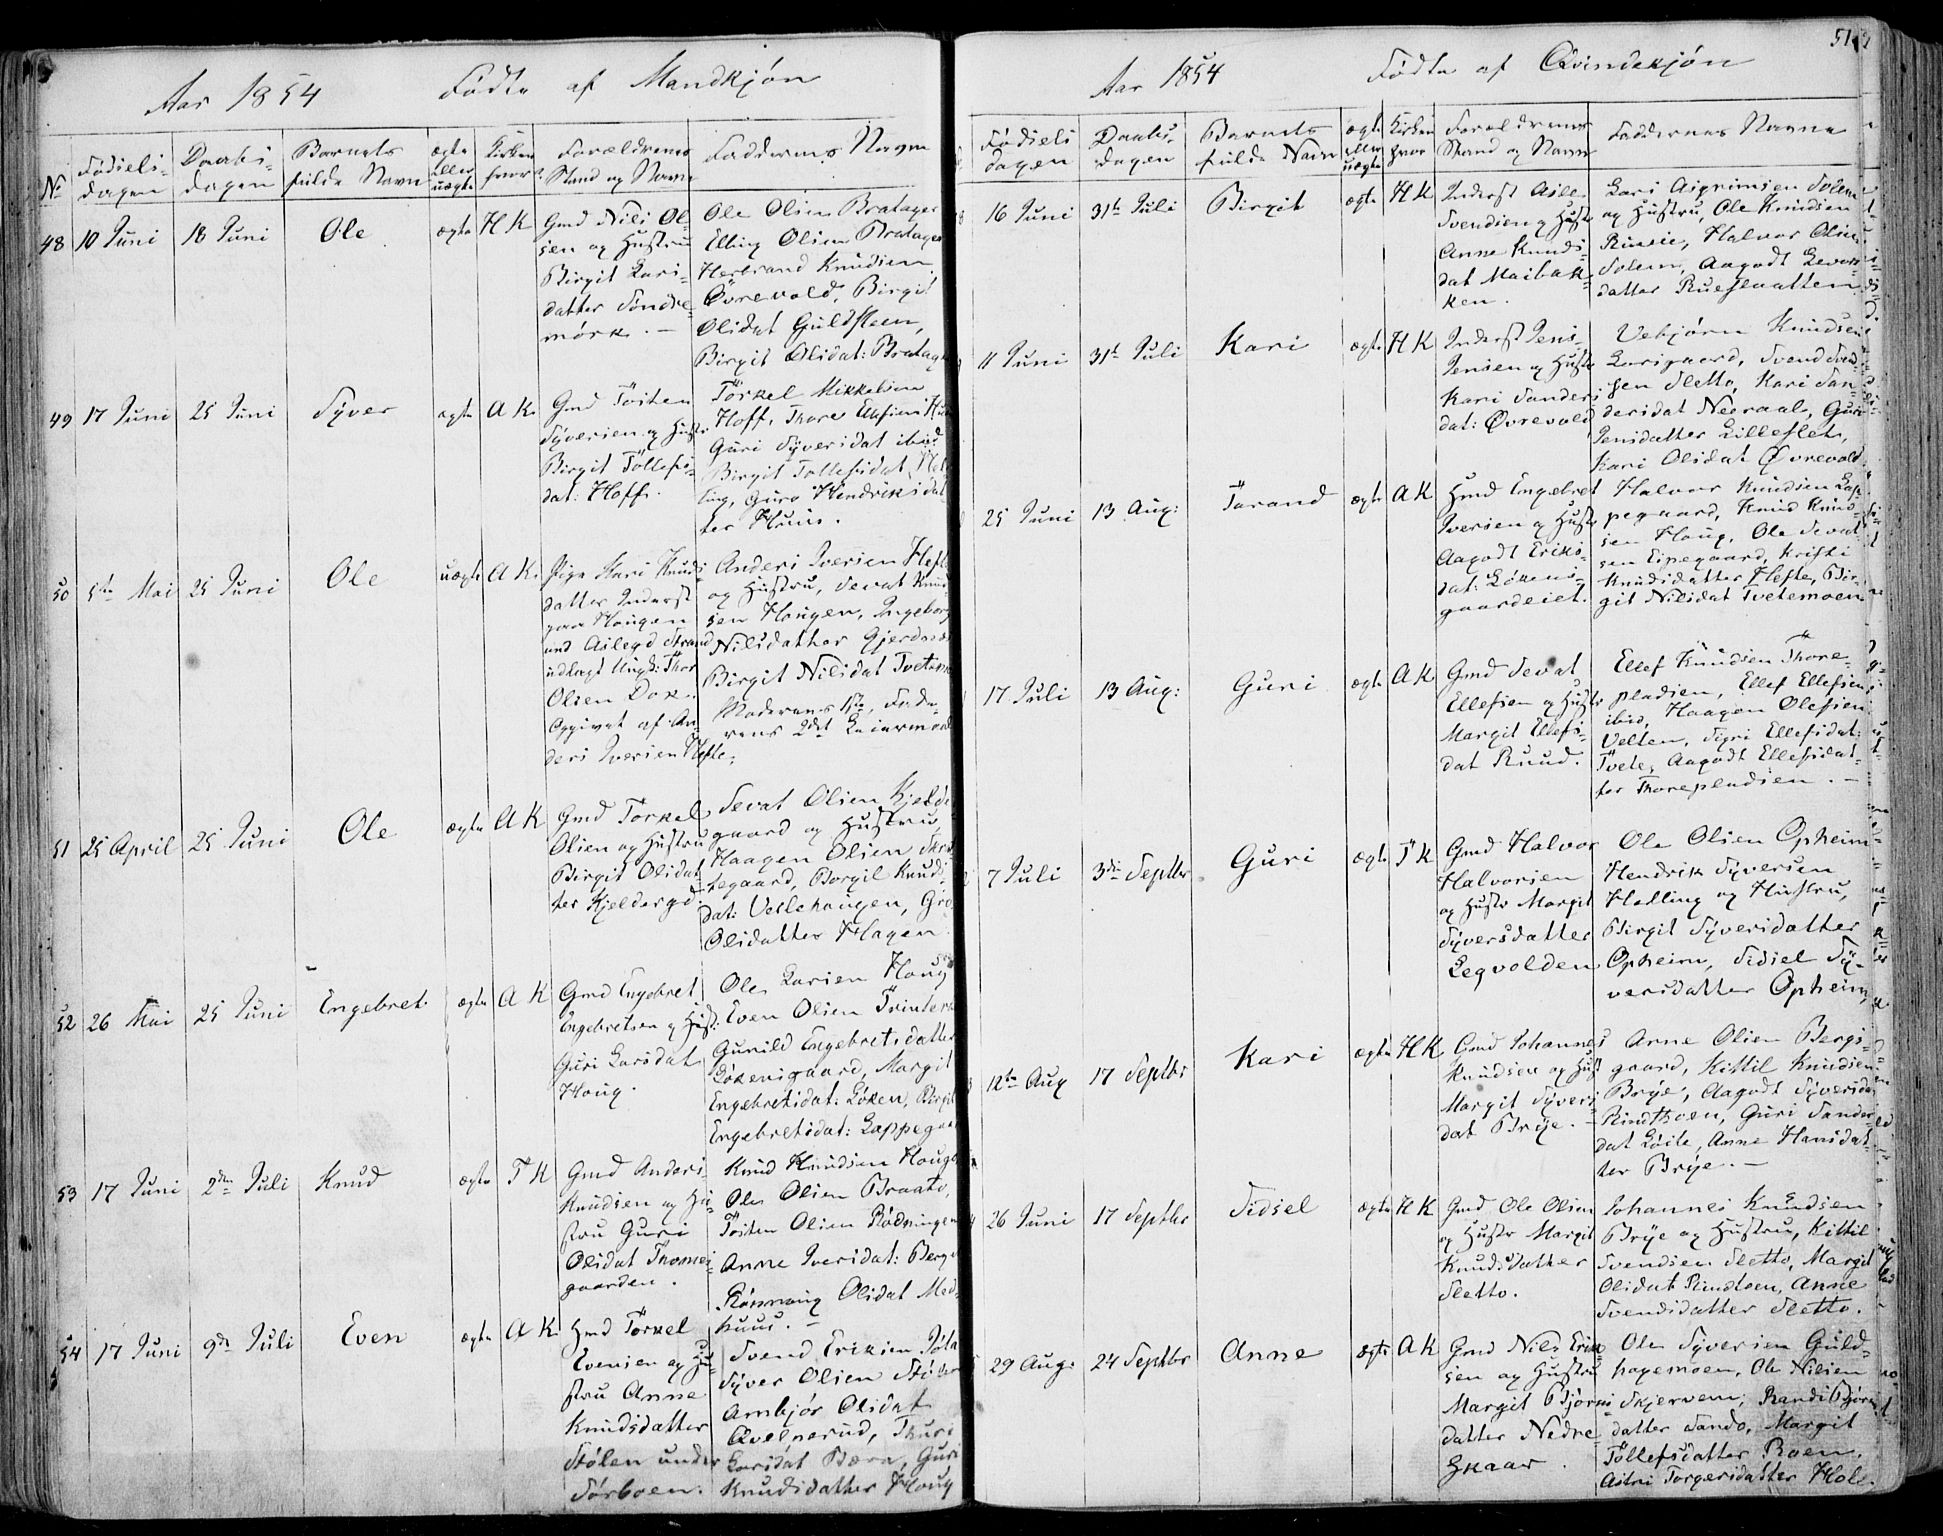 Aar 1854 Fødte af Mandkjøn
No Fødsels- dagen
Daabs- dagen
Barnets fulde Navn
ægte eller uægte
Kirken hvor
Forældrenes Stand og Navn
Faddernes Navn
48 10 Juni 18 Juni Ole ægte H K
Gmd Nils Ol-
sen og Hustru
Birgit Lars-
datter Søndre-
mørk. —
Ole Olsen Bratager
Elling Olsen Bratager
Herbrand Knudsen
Øvrevold, Birgit
Olsdat Guldsteen,
Birgit Olsdat: Bratag
49 17 Juni 25 Juni Syver ægte A K.
Gmd Tosten
Syversen og Hustr
Birgit Tollefs-
dat: Hoff.
Torkel Mikkelsen
Hoff, Thore Ellefsen
Guri Syversdat ibid
Birgit Tollefsdat
ling, Guro Hendriksdat
ter Huus.
50 5te Mai 25 Juni Ole uægte A K.
Pige Kari Knuds
datter Inderst
paa Hougen
und Aslegd Strand
udlagt Ungk: Thor
Olsen Dok.
Opgivet af An-
ders Iversen Hefte.
Anders Iversen Hefte
og Hustru, Sevat Knud
sen Hougen, Ingeborg
Nilsdatter
Birgit Nilsdat Tvetemo
Moderens 1ste, Fade-
rens 2det Leiermaal
51 25 April 25 Juni Ole ægte A K
Gmd Torkel
Olsen og Hustru
Birgit Olsdat
ter Kjeldergd.
Sevat Olsen Kjelde
gaard og Hustru
Haagen Olsen
tegaard, Borgil Knuds-
dat: Vellehaugen, Gro
Olsdatter Hagen
52 26 Mai 25 Juni Engebret ægte A K
Gmd Engebret
Engebretsen og Hust:
Guri Larsdat
Houg.
Ole Larsen Houg
Even Olsen
Gunild Engebretsdatter
Løkensgaard, Margit
Engebretsdat: Løken, Birgit
Engebretsdat: Lappegaar
53 17 Juni 2den Juli Knud ægte T K
Gmd Anders
Knudsen og Hu-
stru Guri
Olsdat Thomes-
gaarden.
Knud Knudsen Houge
Ole Olsen Braato,
Tosten Olsen Rødningen
Anne Iversdat: Berg
Rønnoug Olsdat Med-
huus. —
54 17 Juni 9de Juli Even ægte A K
Hmd Torkel
Evensen og Hu-
stru Anne
Knudsdatter
Stølen under
Torboen.
Svend Eriksen
Syver Olsen
Ambjør Olsdat
Qvelprud, Thuri
Larsdat Bæra, Guri
Knudsdatter Houg
51
Aar 1854 Fødte af Qvindekjøn
Fødsels dagen
Daabs- dagen
Barnets fulde Navn
ægte eller uægte
Kirken hvor
Forældrenes Stand og Navn
Faddernes Navne
16 Juni 31te Juli Birgit ægte H K
Inderst Asle
Svendsen og Hustr
Anne Knuds-
dat Maibak-
ken.
Lars Asgrimsen Solem
og Hustru, Ole Knudsen
Halvor Olsen
Solem, Aagodt Levors-
datter Rueslaatten
11 Juni 31te Juli Kari ægte H K
Inderst Jens
Jensen og Hustr
Kari Sanders
dat: Øvrevold
Vebjørn Knudsen
Larsgaard, Svend Svend-
sen Sletto, Kari San-
dersdat Neeraal, Guri
Jensdatter Lilleslet,
Kari Olsdat Øvrevold
25 Juni 13 Aug: Tarand ægte A K
Hmd Engebret
Iversen og Hustr
Aagodt Eriks-
dat: Løkens-
gaardeiet.
Halvor Knudsen Lap-
pegaard, Knud Knud-
sen Houg, Ole Sevat
sen Espegaard, Kristi
Knudsdatter Hefte, Bir-
git Nilsdat Tvetemoen
17 Juli 13 Aug: Guri ægte A K
Gmd Sevat
Ellefsen og Hustr
Margit Ellefs-
dat Ruud.
Ellef Knudsen Thore-
pladsen, Ellef Ellefsen
ibid, Haagen Olefsen
Velten, Sigri Ellefsdat:
Tvete, Aagodt Ellefsdat-
ter Thorepladsen. —
7 Juli 3die Septbr Guri ægte T K
Gmd Halvor
Halvorsen
og Hustr Margit
Syversdatter
Legvolden
Ole Olsen Opheim
Hendrik Syversen
Halling og Hustru,
Birgit Syversdatter
Opheim, Sidsel Sy-
versdatter Opheim
12te Aug 17 Septbr Kari ægte H K
Gmd Johannes
Knudsen og Hust
Margit Syvers
dat Brye. —
Arne Olsen Bergs-
gaard, Kittil Knudsen
Brye, Aagodt Syversda
Rindtsoen, Guri Sander-
dat Løite, Anne Hansdat-
ter Brye. —
26 Juni 17 Septbr Sidsel ægte H K
Gmd Ole Olsen
og Hustr Margit
Knudsdatter
Sletto.
Johannes Knudsen
Brye og Hustru, Kittil
Svendsen Sletto, Margit
Olsdat Rindtsen, Anne
Svendsdatter Sletto.
29 Aug: 24 Septbr Anne ægte A K
Gmd Nils Erik
sen og Hustru
Margit Bjørns
datter Nedre
Skaar.
Ole Syversen Guld-
hagemoen, Ole Nilsen
Skjervem, Randi Bjørns
datter Sando, Margit
Tollefsdatter Roen.
Astri Torgersdatter Hole.